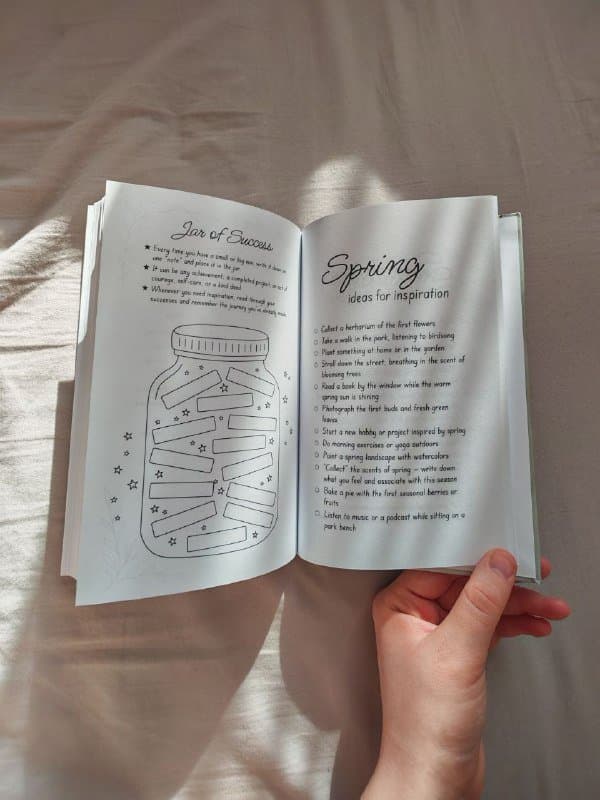 Jar of Success
★ Every time you have a small or big win, write it down on
one "note" and place it in the jar.
★ It can be any achievement: a completed project, an act of
courage, self-care, or a kind deed.
★ Whenever you need inspiration, read through your
successes and remember the journey you've already made.
Spring
ideas for inspiration
Collect a herbarium of the first flowers
Take a walk in the park, listening to birdsong
Plant something at home or in the garden
Stroll down the street, breathing in the scent of
blooming trees
Read a book by the window while the warm
spring sun is shining
Photograph the first buds and fresh green
leaves
Start a new hobby or project inspired by spring
Do morning exercises or yoga outdoors
Paint a spring landscape with watercolors
"Collect" the scents of spring – write down
what you feel and associate with this season
Bake a pie with the first seasonal berries or
fruits
Listen to music or a podcast while sitting on a
park bench